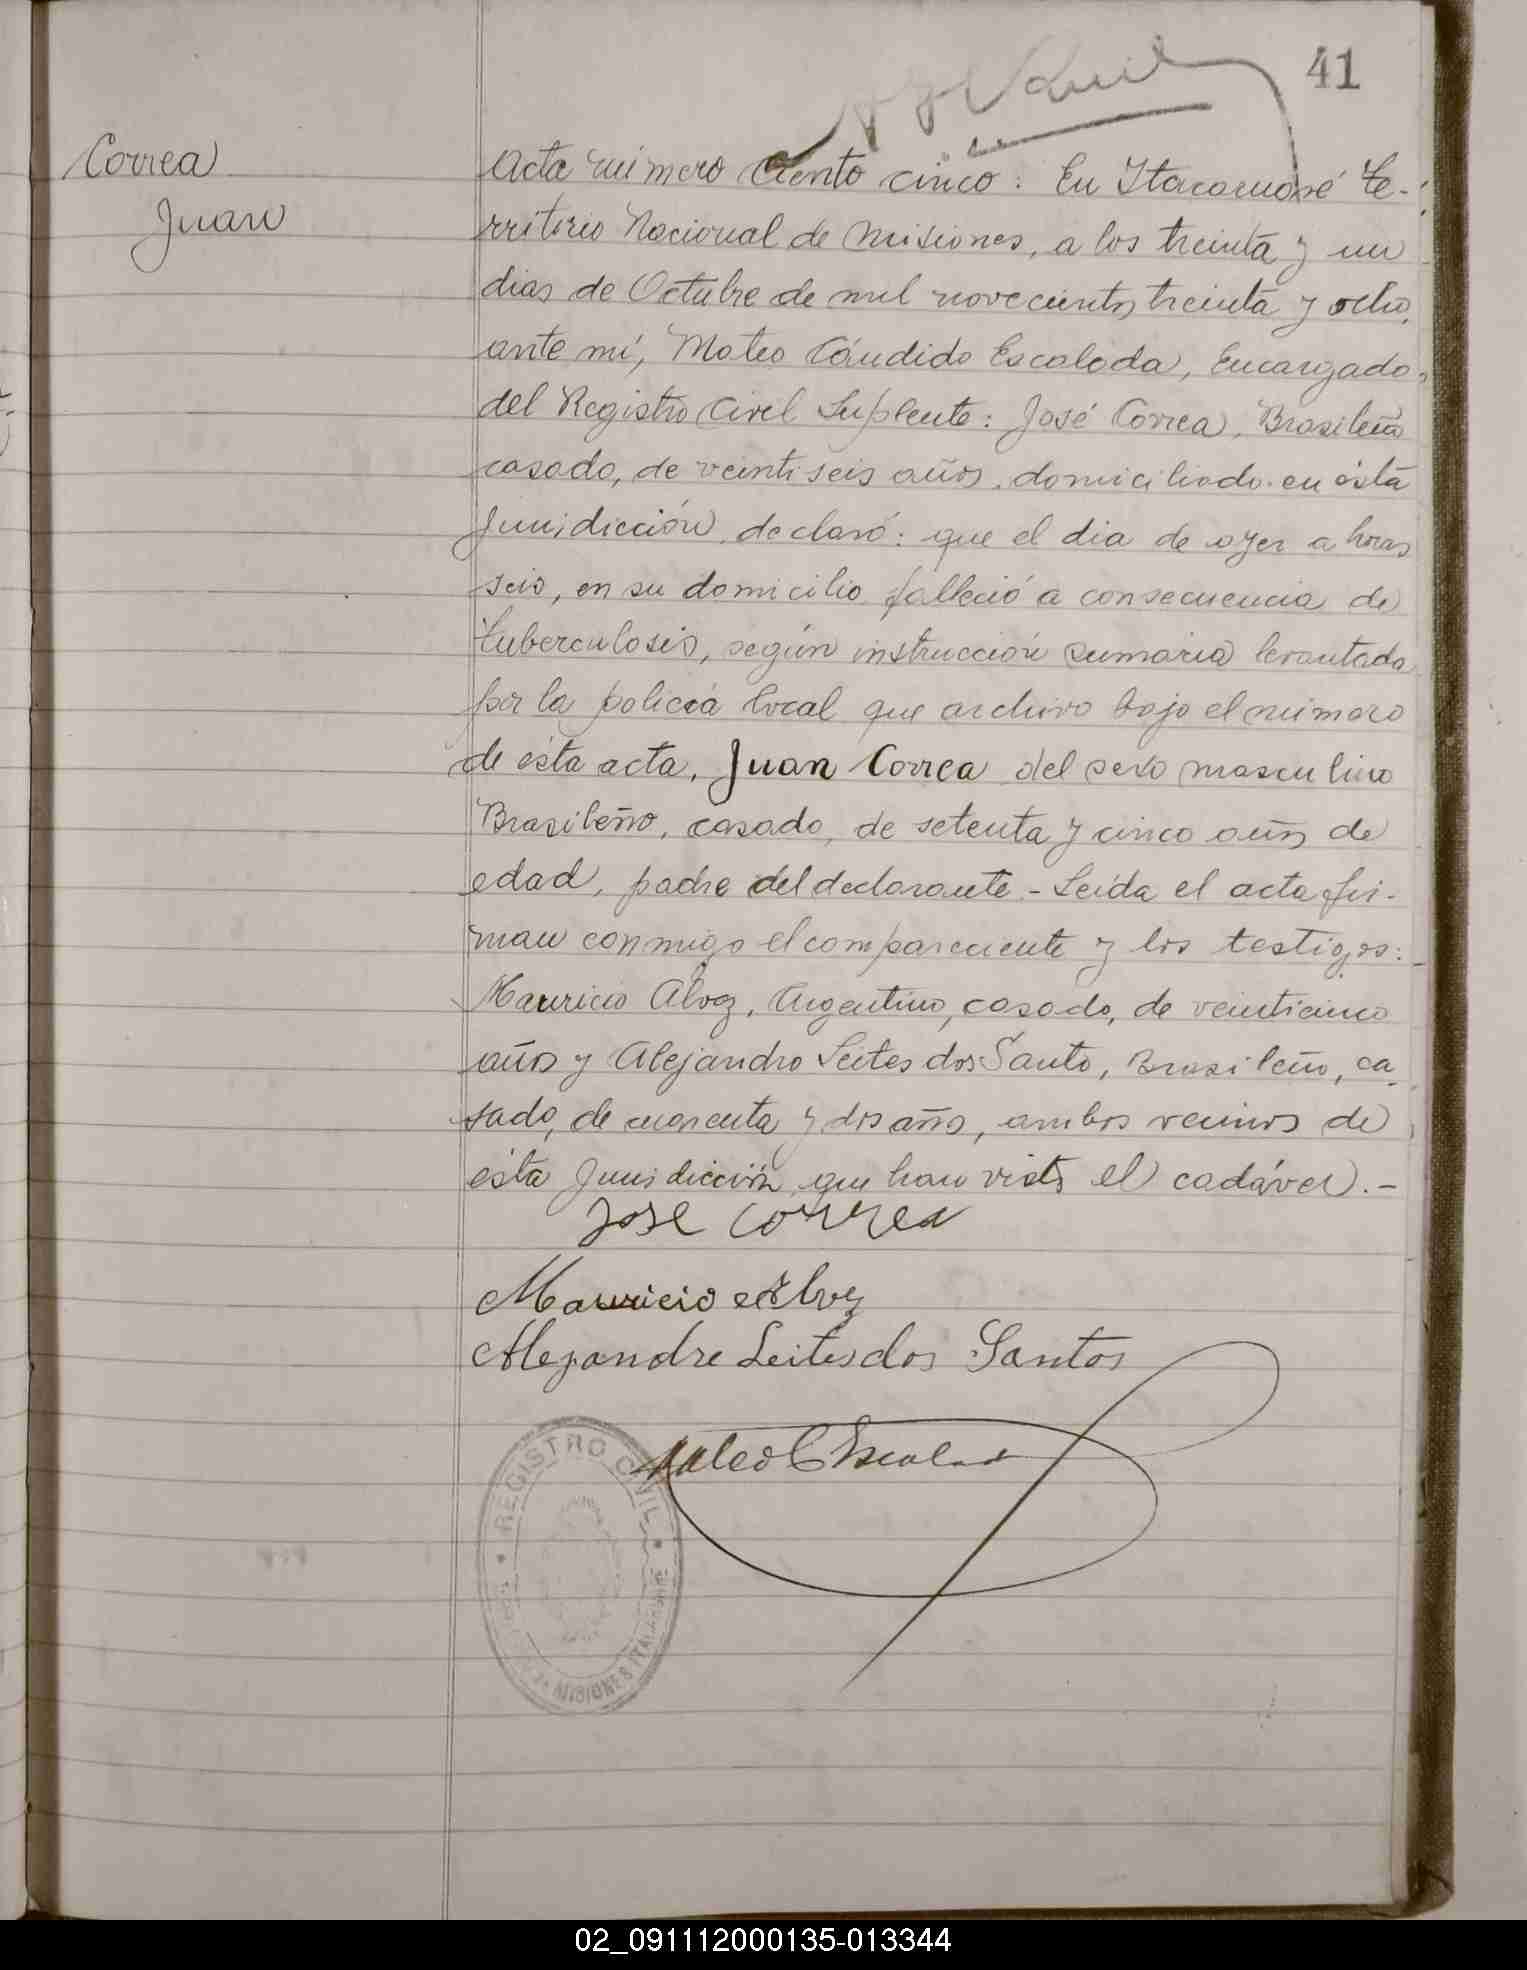 41
Correa
Juan
Acta número Ciento cinco: En Itacaruaré Te-
rritorio Nacional de Misiones, a los treinta y un
dias de Octubre de mil novecientos treinta y ocho,
ante mi, Mateo Cándido Escalada, Encargado
del Registro Civil Suplente: José Correa, Brasileño
casado, de veintiseis años, domiciliado en ésta
Jurisdicción, declaró: que el dia de ayer a horas
seis, en su domicilio falleció a consecuencia de
tuberculosis, según instrucción sumaria levantada
por la policía local que archivo bajo el número
de ésta acta, Juan Correa del sexo masculino
Brasileño, casado, de setenta y cinco años de
edad, padre del declarante.- Leída el acta fir-
man conmigo el compareciente y los testigos:
Mauricio Alvez, Argentino, casado, de veinticinco
años y Alejandro Leites dos Santo, Brasileño, ca-
sado, de cuarenta y dos años, ambos vecinos de
ésta Jurisdicción, que han visto el cadáver.-
Jose Correa
Mauricio Alvez
Alejandre Leites dos Santos
Mateo C Escalada
REGISTRO CIVIL
MISIONES ITACARUARE
02_091112000135-013344